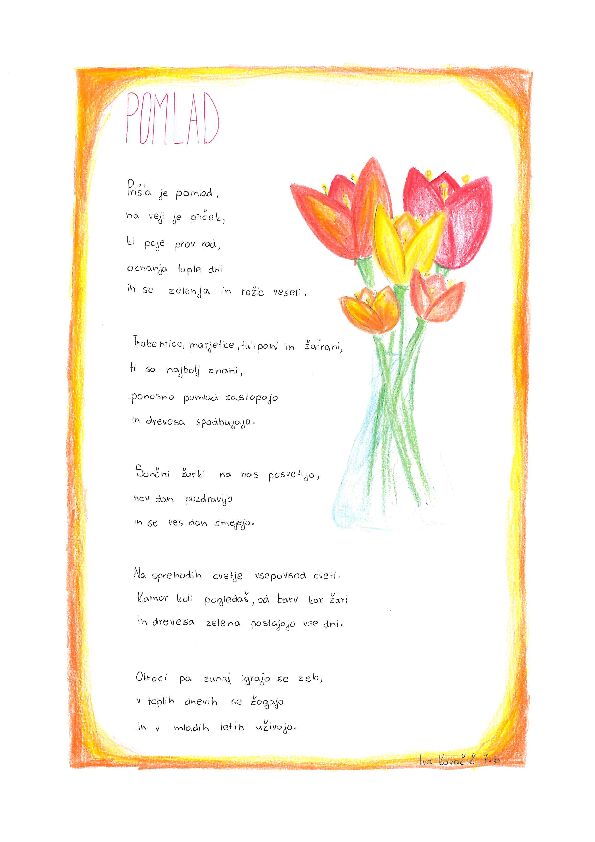 POMLAD
Prišla je pomlad,
na veji je ptiček,
ki poje prav rad,
oznanja tople dni
in se zelenja in rožic veseli.
Trobentice, marjetice, tulipani in žafrani,
ti so najbolj znani,
ponosno pomlad zastopajo
in drevesa spodbujajo.
Sončni žarki na nas posvetijo,
nov dan pozdravijo
in se ves dan smejejo.
Na sprehodih cvetje vsepovsod cveti.
Kamor koli pogledaš, od barv kar žari
in drevesa zelena postajajo vse dni.
Otroci pa zunaj igrajo se zelo,
v toplih dnevih se žogajo
in v mladih letih uživajo.
Kovač 7. b